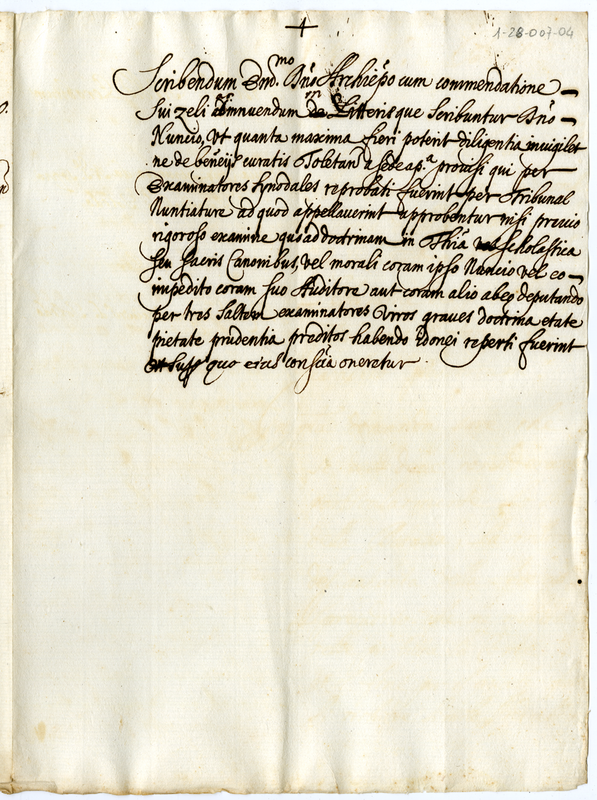 1-28-007-04
Scribendum Ind.mo Dño Archiepo cum commendatione
sui zeli innuendum de Litteris que scribuntur Dño
Nuncio, Vt quanta maxima fieri poterit diligentia inuigilet
ne de beneijs curatis Toletan a sede ap.a prouisi qui per
Examinatores synodales reprobati fuerint per Tribunal
Nuntiature ad quod appellauerint approbentur nisi preuio
rigoroso examine quo ad doctrinam in Thia scholastica
seu sacris Canonibus, vel morali coram ipso Nuncio vel eo
impedito coram suo Auditore aut coram alio ab eo deputando
per tres saltem examinatores Viros graues doctrina etate
pietate prudentia preditos habendo Idonei reperti fuerint
super quo eius conscia oneretur.